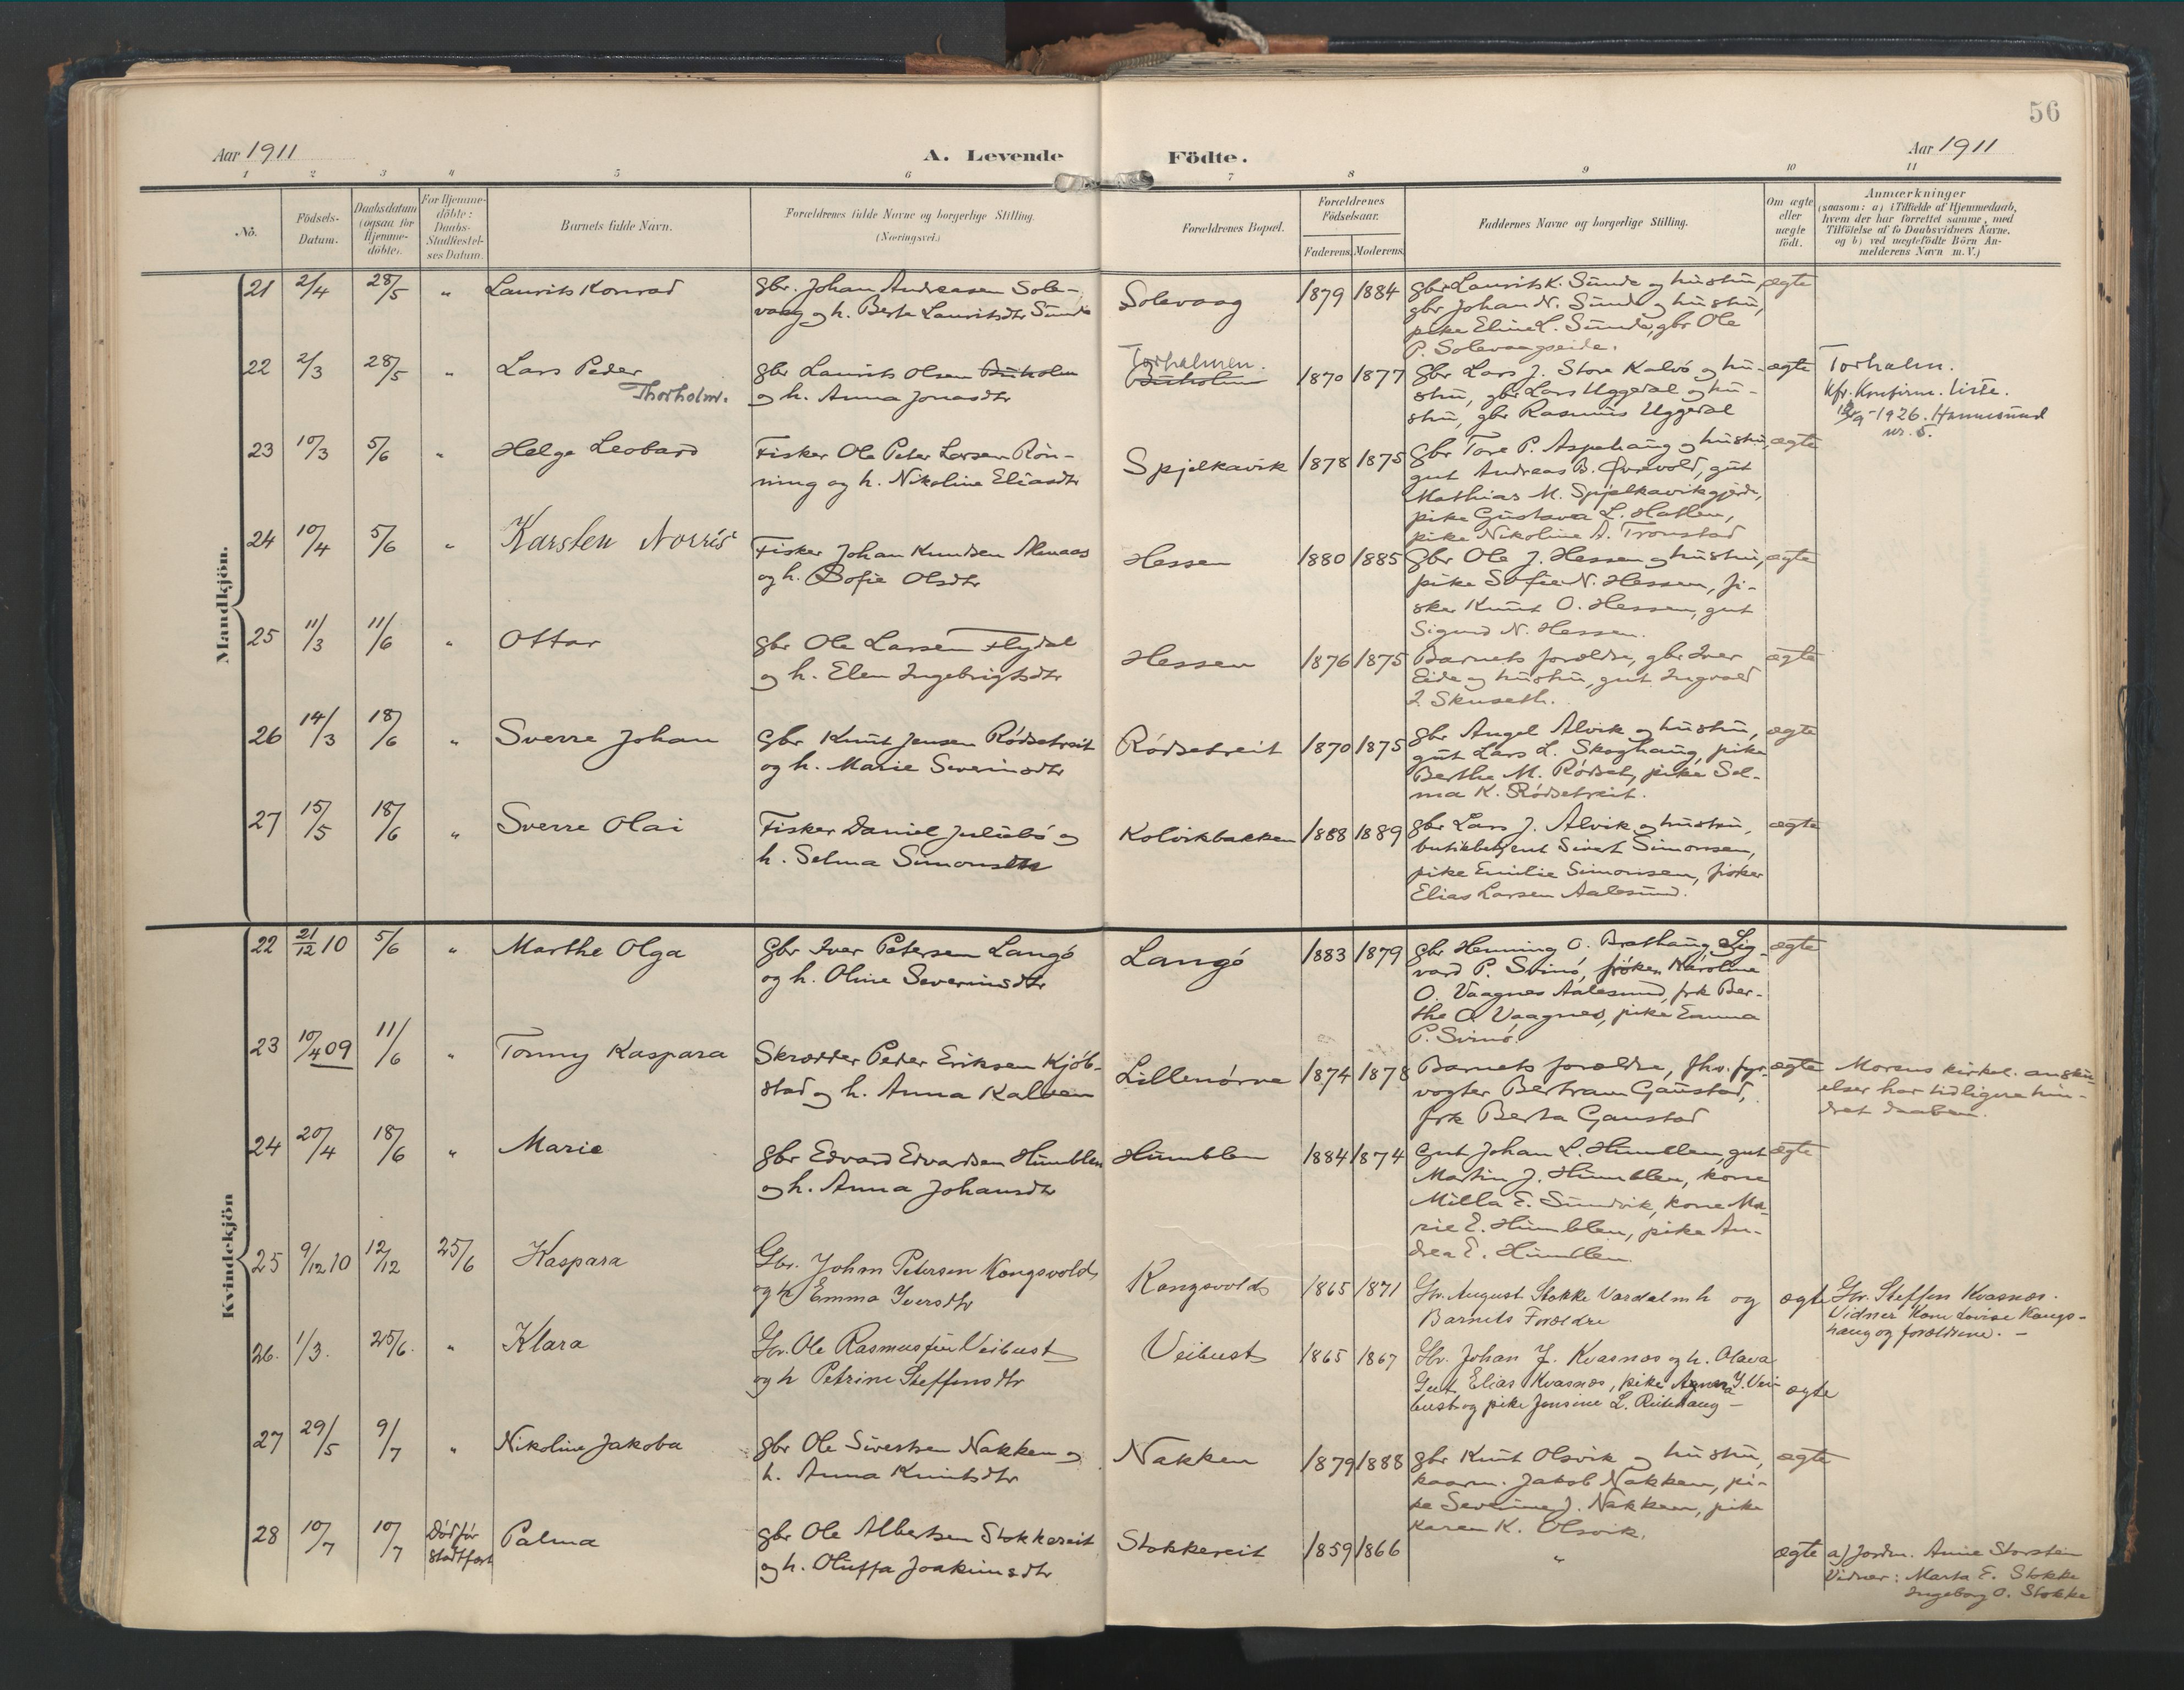 56
Aar 1911
A. Levende Födte.
Aar 1911
1 2 3 4 5 6 7 8 9 10 11
No.
Födsels-
Datum.
Daabsdatum
(ogsaa for
Hjemme-
döbte).
For Hjemme-
döbte:
Daabs-
Stadfæstel-
ses Datum.
Barnets fulde Navn.
Forældrenes fulde Navne og borgerlige Stilling.
(Næringsvei.)
Forældrenes Bopæl.
Forældrenes
Födselsaar.
Faderens. Moderens.
Faddernes Navne og borgerlige Stilling.
Om ægte
eller
uægte
födt.
Anmærkninger
(saasom: a) i Tilfælde af Hjemmedaab,
hvem der har forrettet samme, med
Tilföielse af to Daabsvidners Navne,
og b) ved uægtefödte Börn An-
melderens Navn m. V.)
Mandkjön.
21 2/4 28/5 „ Laurits Konrad
gbr. Johan Andreasen Sole-
vaag og h. Berte Lauritsdtr Sunde
Solevaag 1879 1884
gbr Laurits K. Sunde og hustru,
gbr Johan N. Sunde og hustru,
pike Eline L. Sunde, gbr Ole
P. Solevaagseide.
ægte
22 2/3 28/5 „ Lars Peder
Thorholm.
gbr Laurits Olsen Buholm
og h. Anna Jonasdtr
Torholmen.
Buholm 1870 1877
gbr Lars J. Store Kalvö og hu-
stru, gbr Lars Uggedal og hu-
stru, gbr Rasmus Uggedal
ægte
Torholm.
Kfr. Konfirm. liste.
/9 - 1926. Hamnsund
nr. 5.
23 10/3 5/6 „ Helge Leobard
Fisker Ole Peter Larsen Rön-
ning og h. Nikoline Eliasdtr
Spjelkavik 1878 1875
gbr Tore P. Aspehaug og hustru,
gut Andreas B. Övrevold, gut
Mathias M. Spjelkavikgjerde,
pike Gustava L. Hatlen,
pike Nikoline A. Tronstad
ægte
24 10/4 5/6 „ Karsten Norris
Fisker Johan Knudsen Almaas
og h. Sofie Olsdtr
Hessen 1880 1885
gbr Ole J. Hessen og hustru,
pike Sofie N. Hessen, fi-
sker Knut O. Hessen, gut
Sigurd N. Hessen.
ægte
25 11/3 11/6 „ Ottar
gbr Ole Larsen Flydal
og h. Elen Ingebrigtsdtr
Hessen 1876 1875
Barnets forældre, gbr Iver
Eide og hustru, gut Ingvald
I Skuseth.
ægte
26 14/3 18/6 „ Sverre Johan
gbr Knut Jensen Rödsetreit
og h. Marie Severinsdtr
Rödsetreit 1870 1875
gbr Angel Alvik og hustru,
gut Lars L. Skoghaug, pike
Berthe M. Rödset, pike Sel-
ma K. Rödsetreit.
ægte
27 15/5 18/6 „ Sverre Olai
Fisker Daniel Juliebö og
h. Selma Simonsdtr
Kolvikbakken 1888 1889
gbr Lars J. Alvik og hustru,
butikbetjent Sivert Simonsen,
pike Emilie Simonsen, fisker
Elias Larsen Aalesund.
ægte
Kvindekjön
22 21/12 10 5/6 „ Marthe Olga
gbr Iver Petersen Langö
og h. Oline Severinsdtr
Langö 1883 1879
gbr Henning O. Brathaug, Sig-
vard P. Svinö, fröken Karoline
O. Vaagnes Aalesund, frk Ber-
the O. Vaagnes, pike Emma
P. Svinö.
ægte
23 10/4 09 11/6 „ Tonny Kaspara
Skrædder Peder Eriksen Kjöb-
stad og h. Anna Kalven
Lillenörve 1874 1878
Barnets forældre, fhv. fyr-
vogter Bertram Gaustad,
frk Berta Gaustad
ægte
Morens kirkel. ansku-
elser har tidligere hin-
dret daaben.
24 20/4 18/6 „ Marie
gbr Edvard Edvardsen Humblen
og h. Anna Johansdtr
Humblen 1884 1874
Gut Johan L. Humblen, gut
Martin J. Humblen, kone
Milla E. Sundvik, kone Ma-
rie E. Humblen, pike An-
drea E. Humblen.
ægte
25 9/12 10 12/12 25/6 Kaspara
Gbr. Johan Petersen Kongsvold
og h Emma Iversdtr
Kongsvold 1865 1871
Gbr. August Stokke Vardal m h og
Barnets Forældre
ægte
Gbr. Steffen Kvasnes.
Vidner Kone Lovise Kongs-
haug og forældrene. –
26. 1/3. 25/6. „ Klara
Gbr. Ole Rasmussen Veibust
og h Petrine Steffensdtr
Veibust 1865 1867
Gbr. Johan J. Kvasnes og h. Olava
Gut Elias Kvasnes, pike Agnes J. Vei-
bust og pike Jensine L. Reitehaug –
ægte
27 29/5 9/7 „ Nikoline Jakoba
gbr Ole Sivertsen Nakken og
h. Anna Knutsdtr
Nakken 1879 1888
gbr Knut Olsvik og hustru,
kaarm. Jakob Nakken, pi-
ke Severine J. Nakken, pike
Karen K. Olsvik.
ægte
28 10/7 10/7 Död för
stadfæst
Palma
gbr Ole Albertsen Stokkereit
og h. Oluffa Joakimsdtr
Stokkereit 1859 1866
„
ægte
a) Jordm. Anne Storstein
Vidner: Marta E. Stokke
Ingeborg O. Stokke